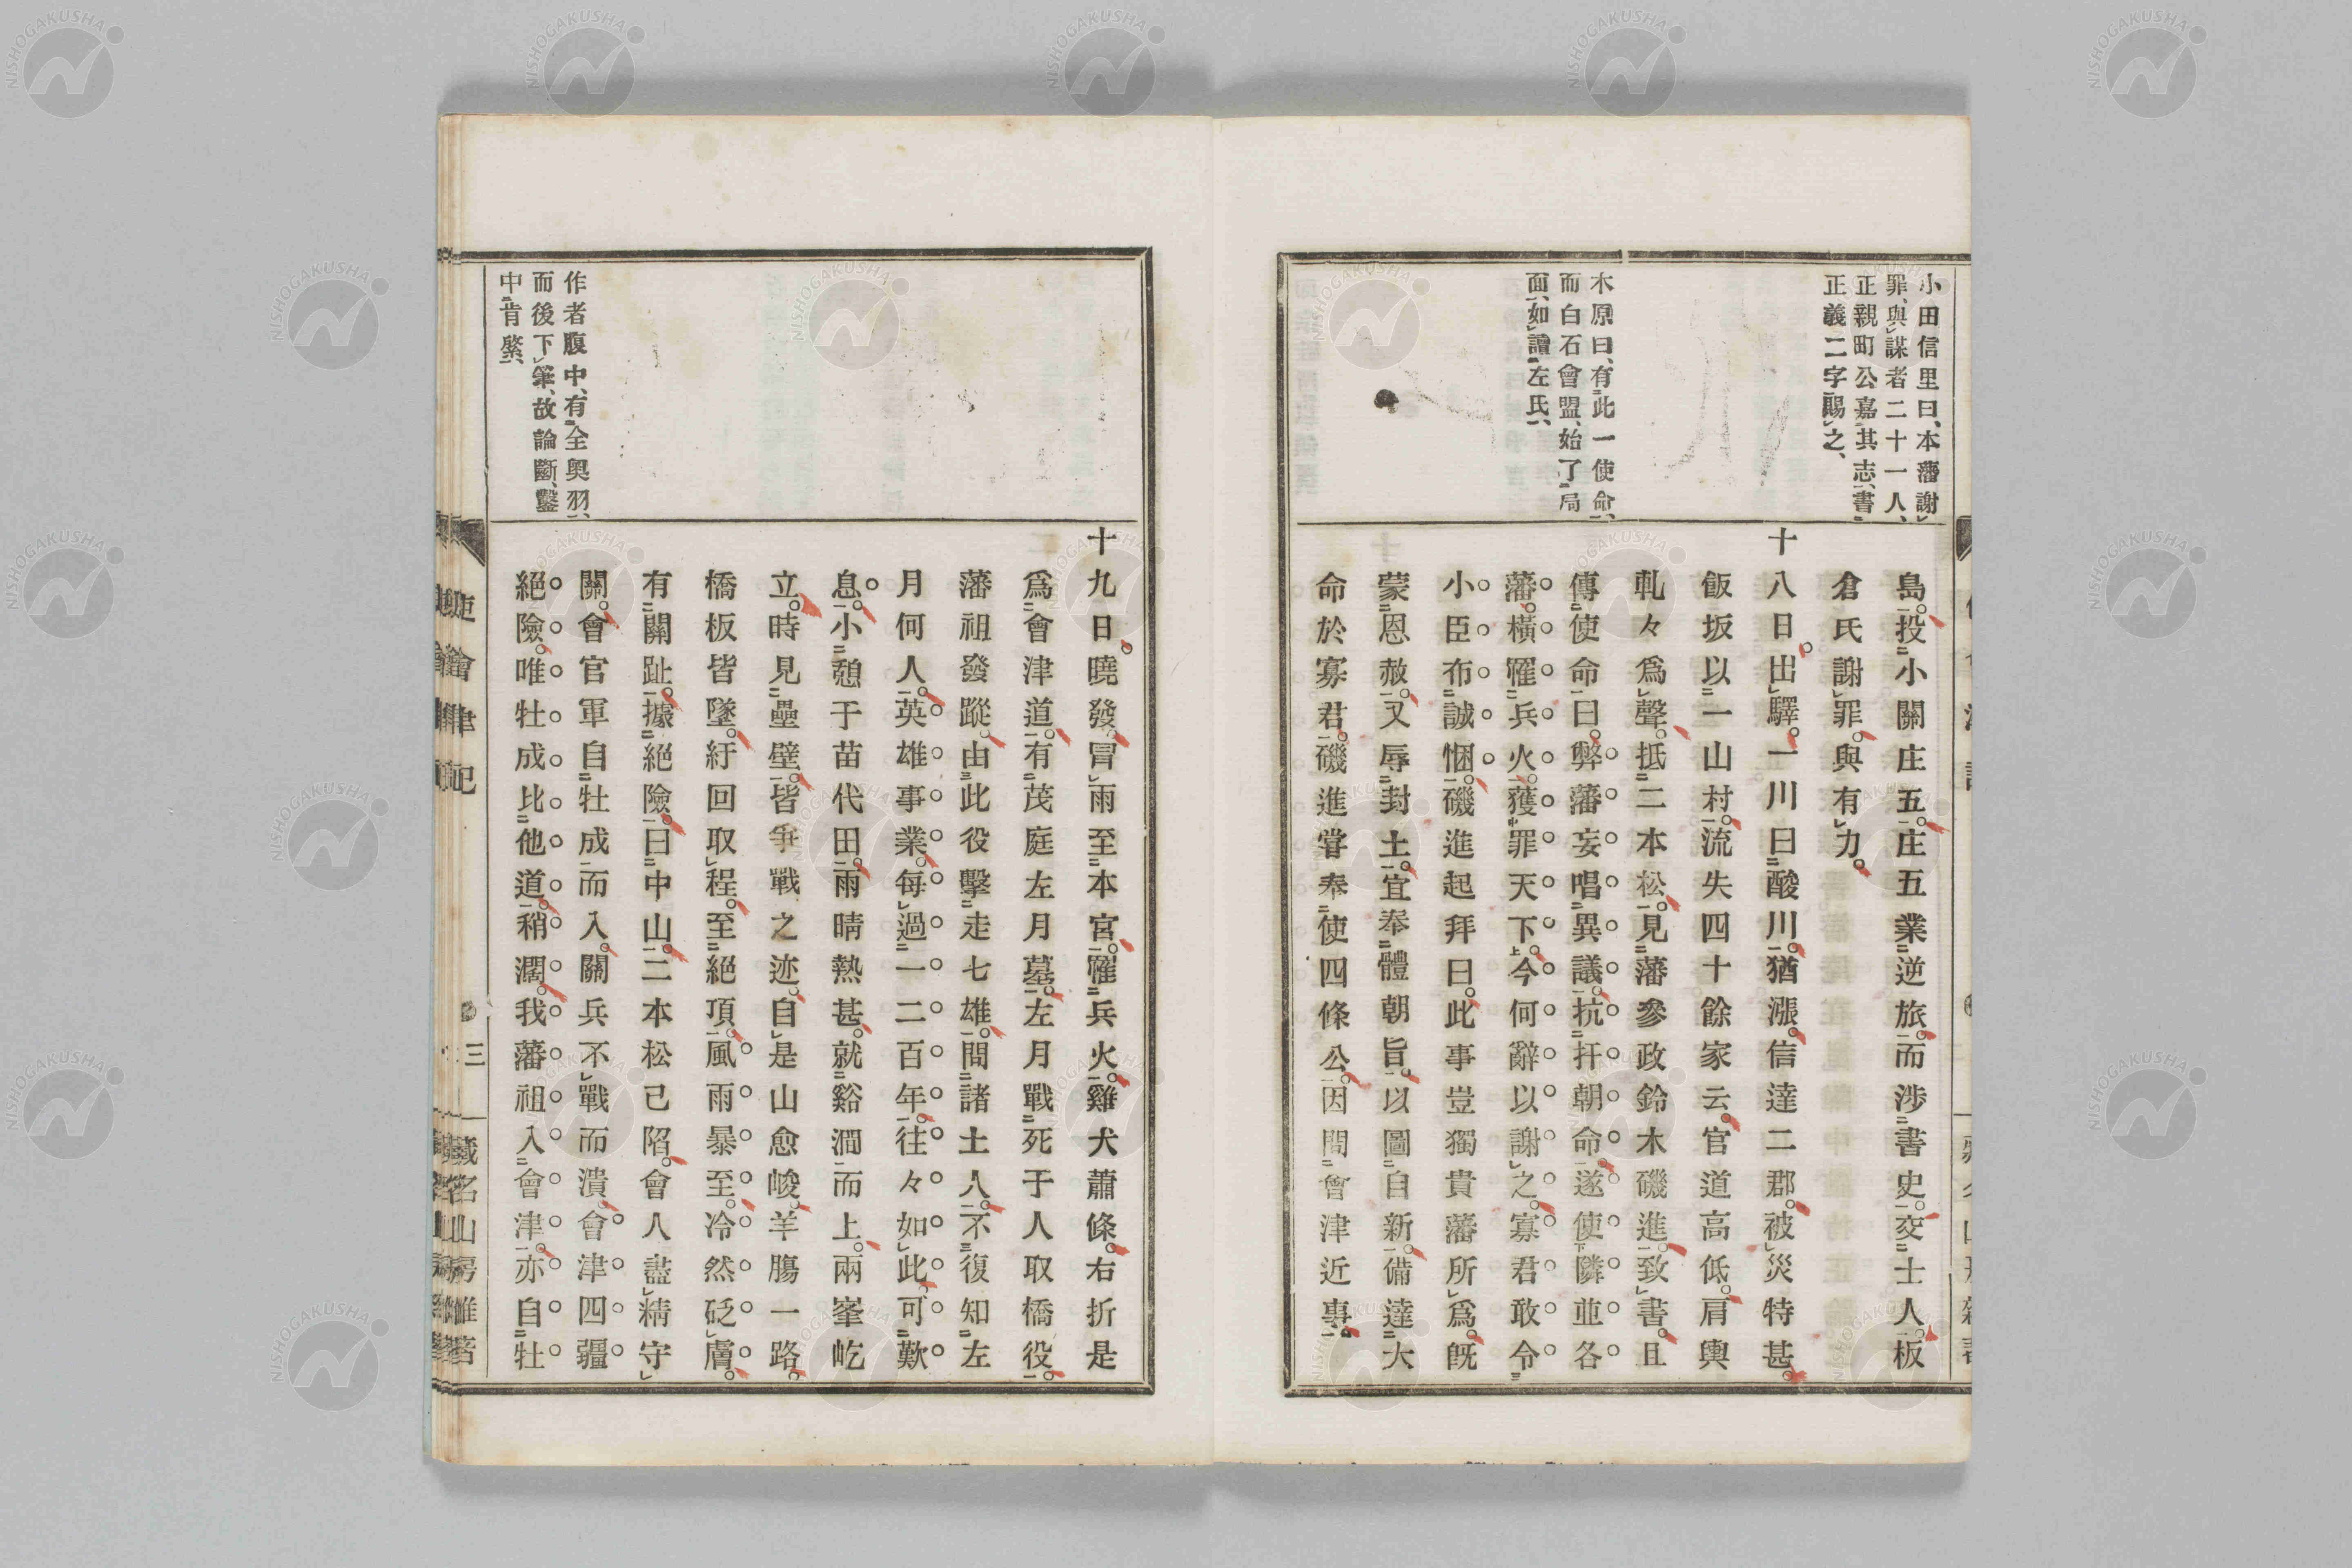 小田信里曰、本藩謝
罪、與謀者二十一人、
正親町公嘉其志、書
正義二字賜之、
木原曰、有此一使命、
而白石會盟、始了局
面、如讀左氏、
島。投小關庄五。庄五業逆旅。而涉書史。交士人。板
倉氏謝罪。與有力。
十八日。出驛。一川曰酸川。猶漲。信達二郡。被災特甚。
飯坂以一山村。流失四十餘家云。官道高低。肩輿
軋々爲聲。抵二本松。見藩參政鈴木磯進。致書。且
傳使命曰。弊藩妄唱異議。抗扞朝命。遂使隣並各
藩。橫罹兵火。獲罪天下。今何辭以謝之。寡君敢令
小臣布誠悃。磯進起拜曰。此事豈獨貴藩所爲。既
蒙恩赦。又辱封土。宜奉體朝旨。以圖自新。備達大
命於寡君。磯進甞奉使四條公。因問會津近事。
作者腹中、有全奧羽、
而後下筆、故論斷、鑿
中肯綮、
十九日。曉發。冒雨至本宮。罹兵火。雞犬蕭條。右折是
爲會津道。有茂庭左月墓。左月戰死于人取橋役。
藩祖發蹤。由此役擊走七雄。問諸土人。不復知左
月何人。英雄事業。每過一二百年。往々如此。可歎
息。小憩于苗代田。雨晴熱甚。就谿澗而上。兩峯屹
立。時見壘壁。皆爭戰之迹。自是山愈峻。羊腸一路。
橋板皆墜。紆回取程。至絕頂。風雨暴至。冷然砭膚。
有關趾。據絕險。曰中山。二本松已陷。會人盡精守
關。會官軍自牡成而入。關兵不戰而潰。會津四疆
絕險。唯牡成比他道。稍濶。我藩祖入會津。亦自牡
旋會津記
三
藏名山房雜著